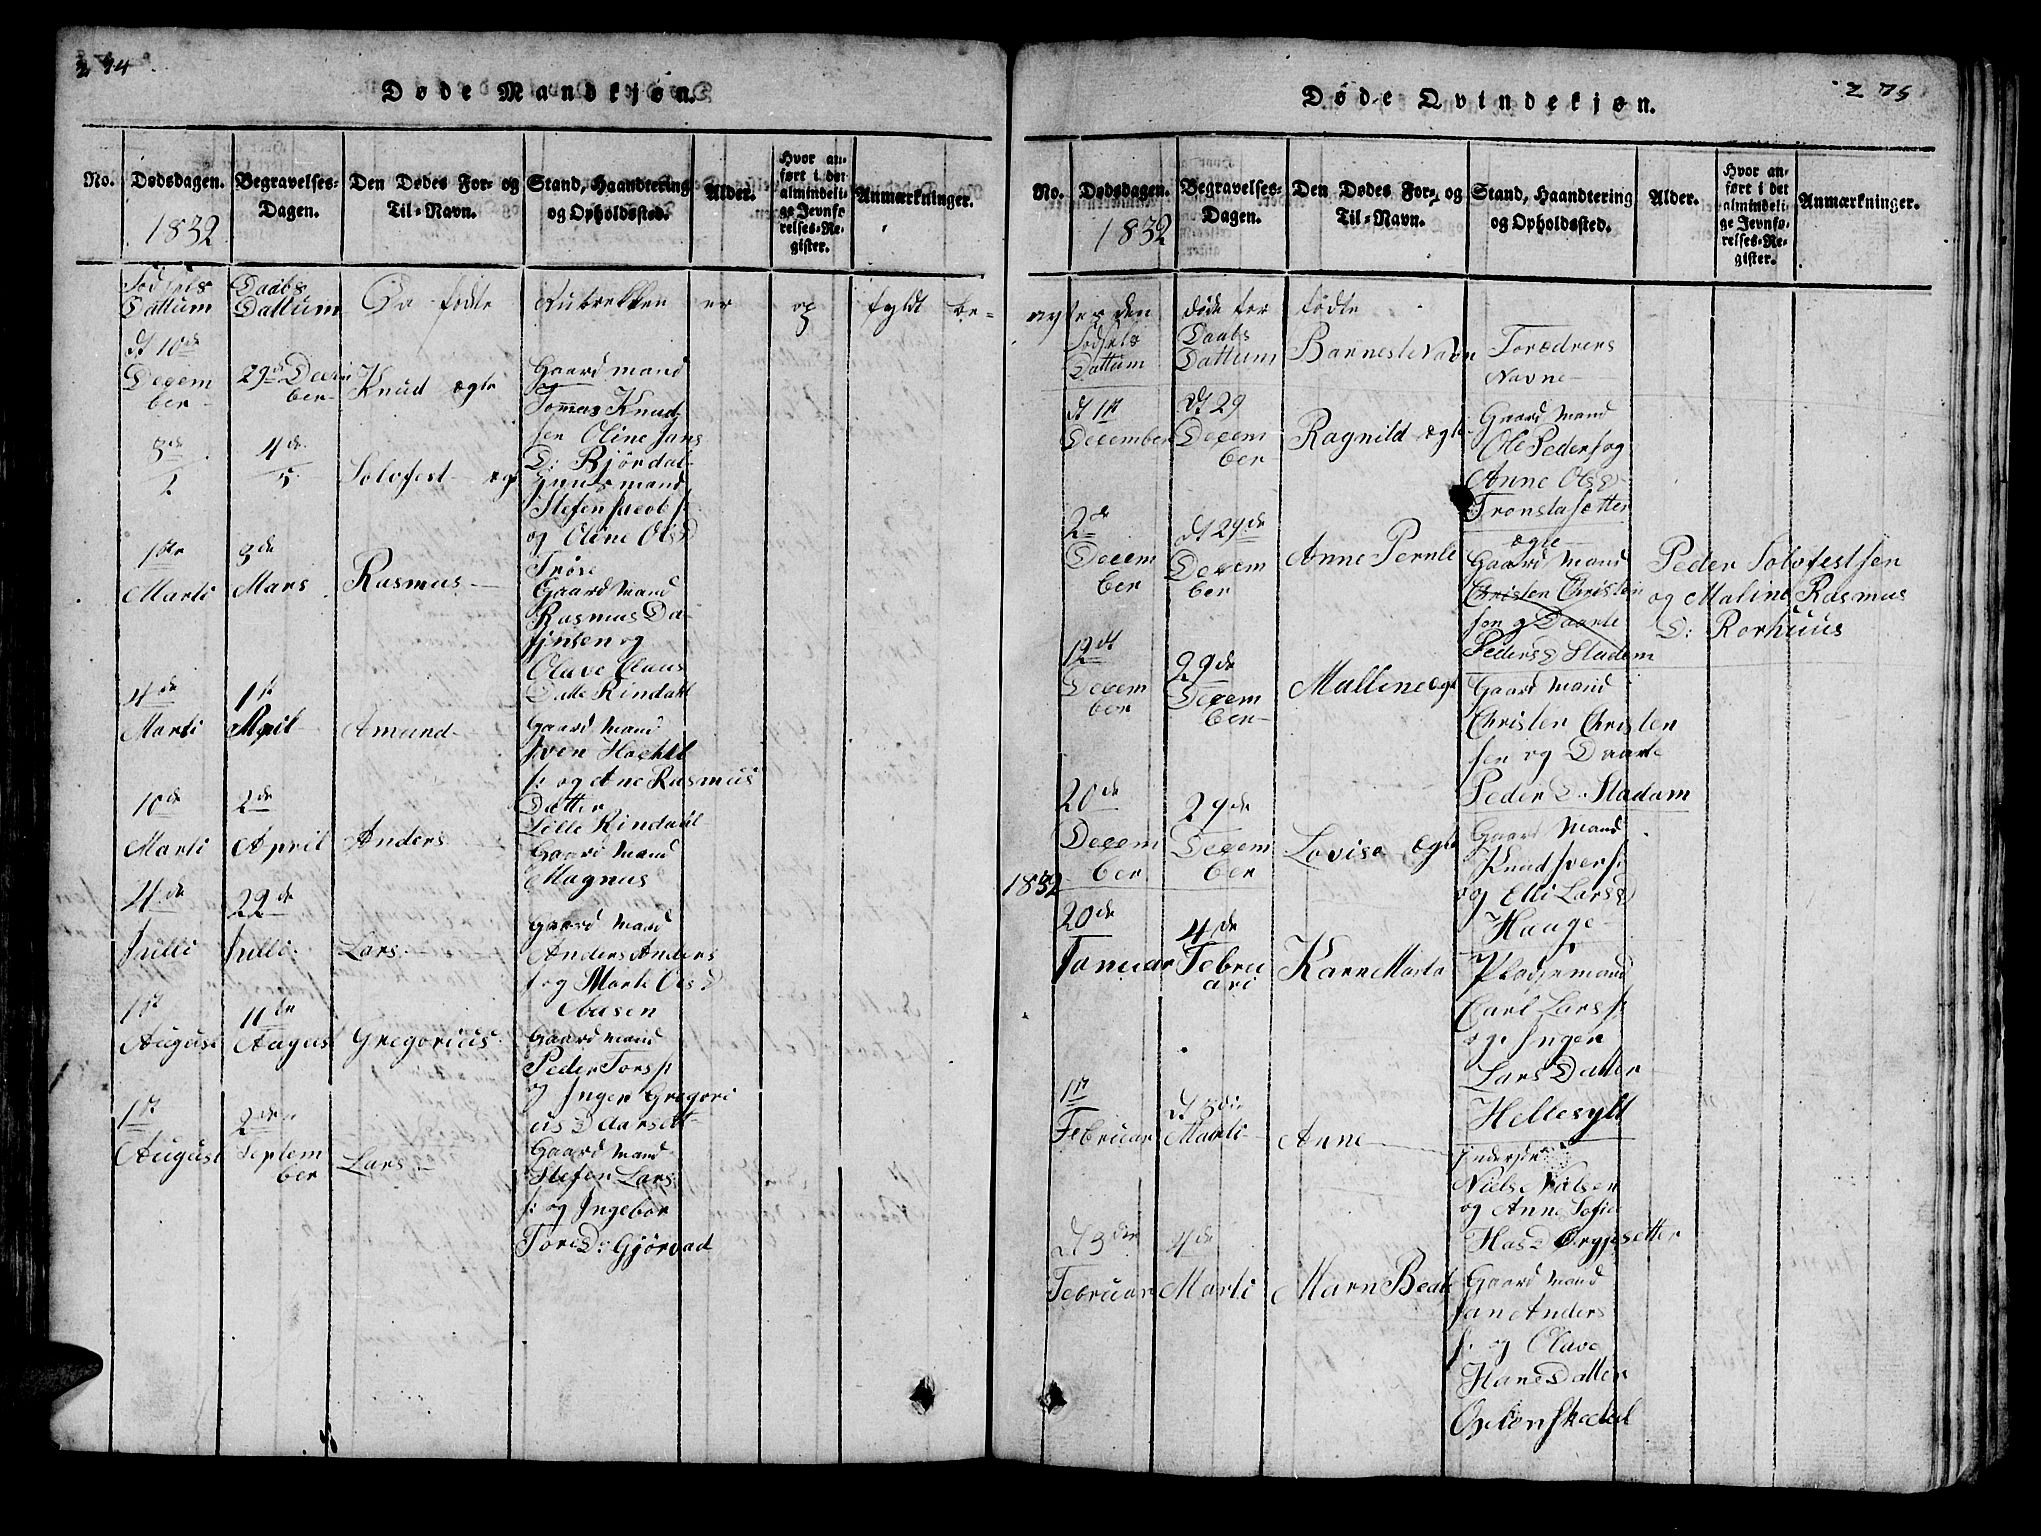 274
Døde Mandkjøn.
No.
Dødsdagen.
1832
Begravelses-
Dagen.
Den Dødes For- og
Til-Navn.
Stand, Haandtering
og Opholdssted.
Alder.
Hvor an-
ført i det
almindeli-
ge Jevnfø-
relses-Re-
gister.
Anmærkninger.
Fødsels Daabs
Dattum Dattum Da fødte Rubrekken er og fyldt be-
dt 10de
Decem
ber
29de Decem
ber
Knud ægte
Gaard mand
Tommas Knud
sen Oline Jans
D: Bjørdal
3de
1
4de
5
Solofest ægt
mand
Stefen Jacob s:
og Oline Ols D
Trøse
1ste
Marti
3de
Mars
Rasmus
Gaard mand
Rasmus Da-
og
Olave Claus
Datte Rindahl
4de
Marti
1st
April
Amund
Gaard mand
Iven
s: og Ane Rasmus
Datter
Lille Rindahl
10de
Marti
2de
April
Anders
Gaard mand
Magnus
4de
Julli
22de
Julli
Lars
Gaard mand
Anders Anders
s og Marte Ols D
Aasen
1st
August
11de
August
Gregorius
Gaard mand
Peder Tors s:
og Ingen Gregori
us D Aarsett
1st
August
2de
Septem
ber
Lars
Gaard mand
Stefen Lars
s: og Ingebor
Tores D: Gjørvad
275
Døde Qvindekjøn.
No.
Dødsdagen.
1832
Begravelses-
Dagen.
Den Dødes For- og
Til-Navn.
Stand, Haandtering
og Opholdssted.
Alder.
Hvor an-
ført i det
almindeli-
ge Jevnfø-
relses-Re-
gister.
Anmærkninger.
den døde for fødte
Fødsels
Dattum
Daabs
Dattum
Barnets Navn
Forædrers
Navne
dt 1st
December
dt 29
Decem
ber
Ragnild ægte
Gaard mand
Ole Peders og
Anne Ols D
Tronstasetter
2de
Decem
ber
dt 29de
Decem
ber
Anne Pernle
ægte
Gaard mand
Christen Christen
sen og Daarte
Peders D Stadem
Peder Solofestsen
og Maline Rasmus
D: Rorhuus
19dt
Decem
ber
29de
Decem
ber
Malline ægt
Gaard mand
Christen Christen
sen og Daarte
Peder D. Stadam
20de
Decem
ber
29de
Decem
ber
Lovise ægte
Gaard mand
Knud Ivers s:
og Elli Lars D
Hauge
1832
20de
Januar
4de
Febru
ari
Karn Marta
mand
Carl Lars s:
og Ingen
Lars Datter
Hellesylt
1st
Februar
dt 3die
Marti
Anne
Inderst
Niels Nielsen
og Anne Sofie
Has D Ørgjesetter
dt 3die
Februar
4de
Marti
Marn Beate
Gaard mand
Jan Anders
s: og Olave
Hans Datter